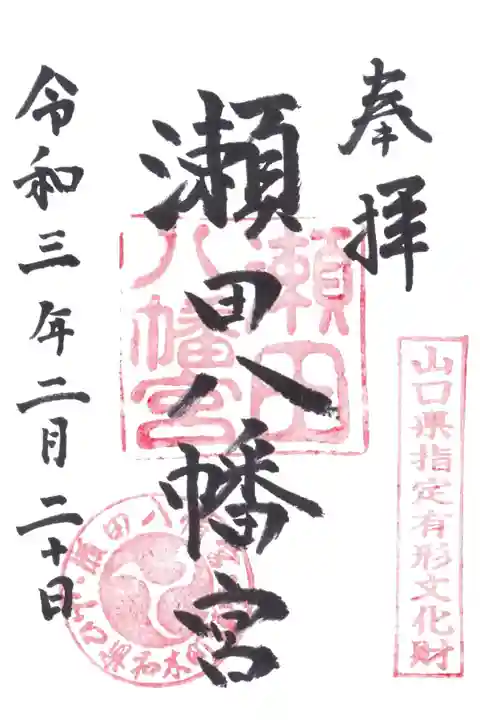 奉拝
山口県指定有形文化財
瀬田八幡宮
瀬田
八幡宮
令和三年二月二十日